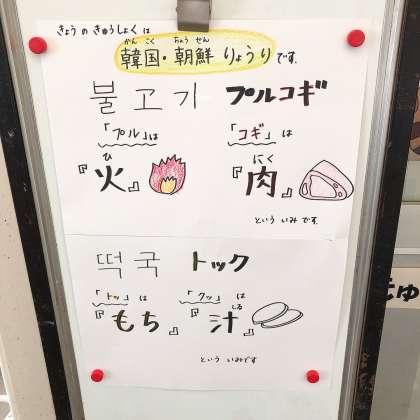 きょう の きゅうしょく は
かん こく ちょう せん
韓国・朝鮮 りょうり です。
불고기 プルコギ
「プル」は 「コギ」は
ひ にく
『火』 『肉』
という いみ です。
떡국 トック
「トッ」は 「クッ」は
しる
『もち』 『汁』
という いみです